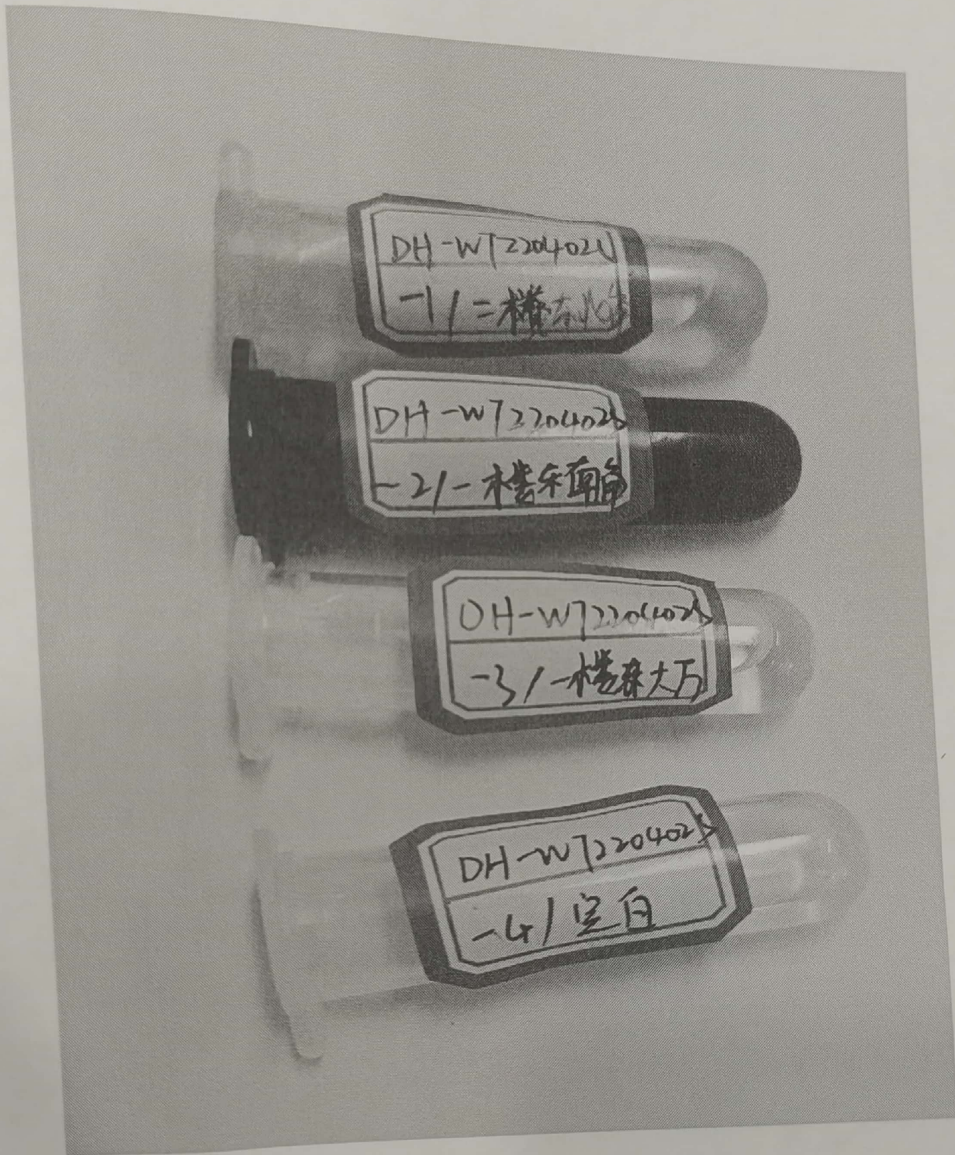 DH-WT2204025
-1/二楼东北角
DH-WT2204025
-2/一楼东南角
DH-WT2204025
-3/一楼大厅
DH-WT2204025
-4/空白